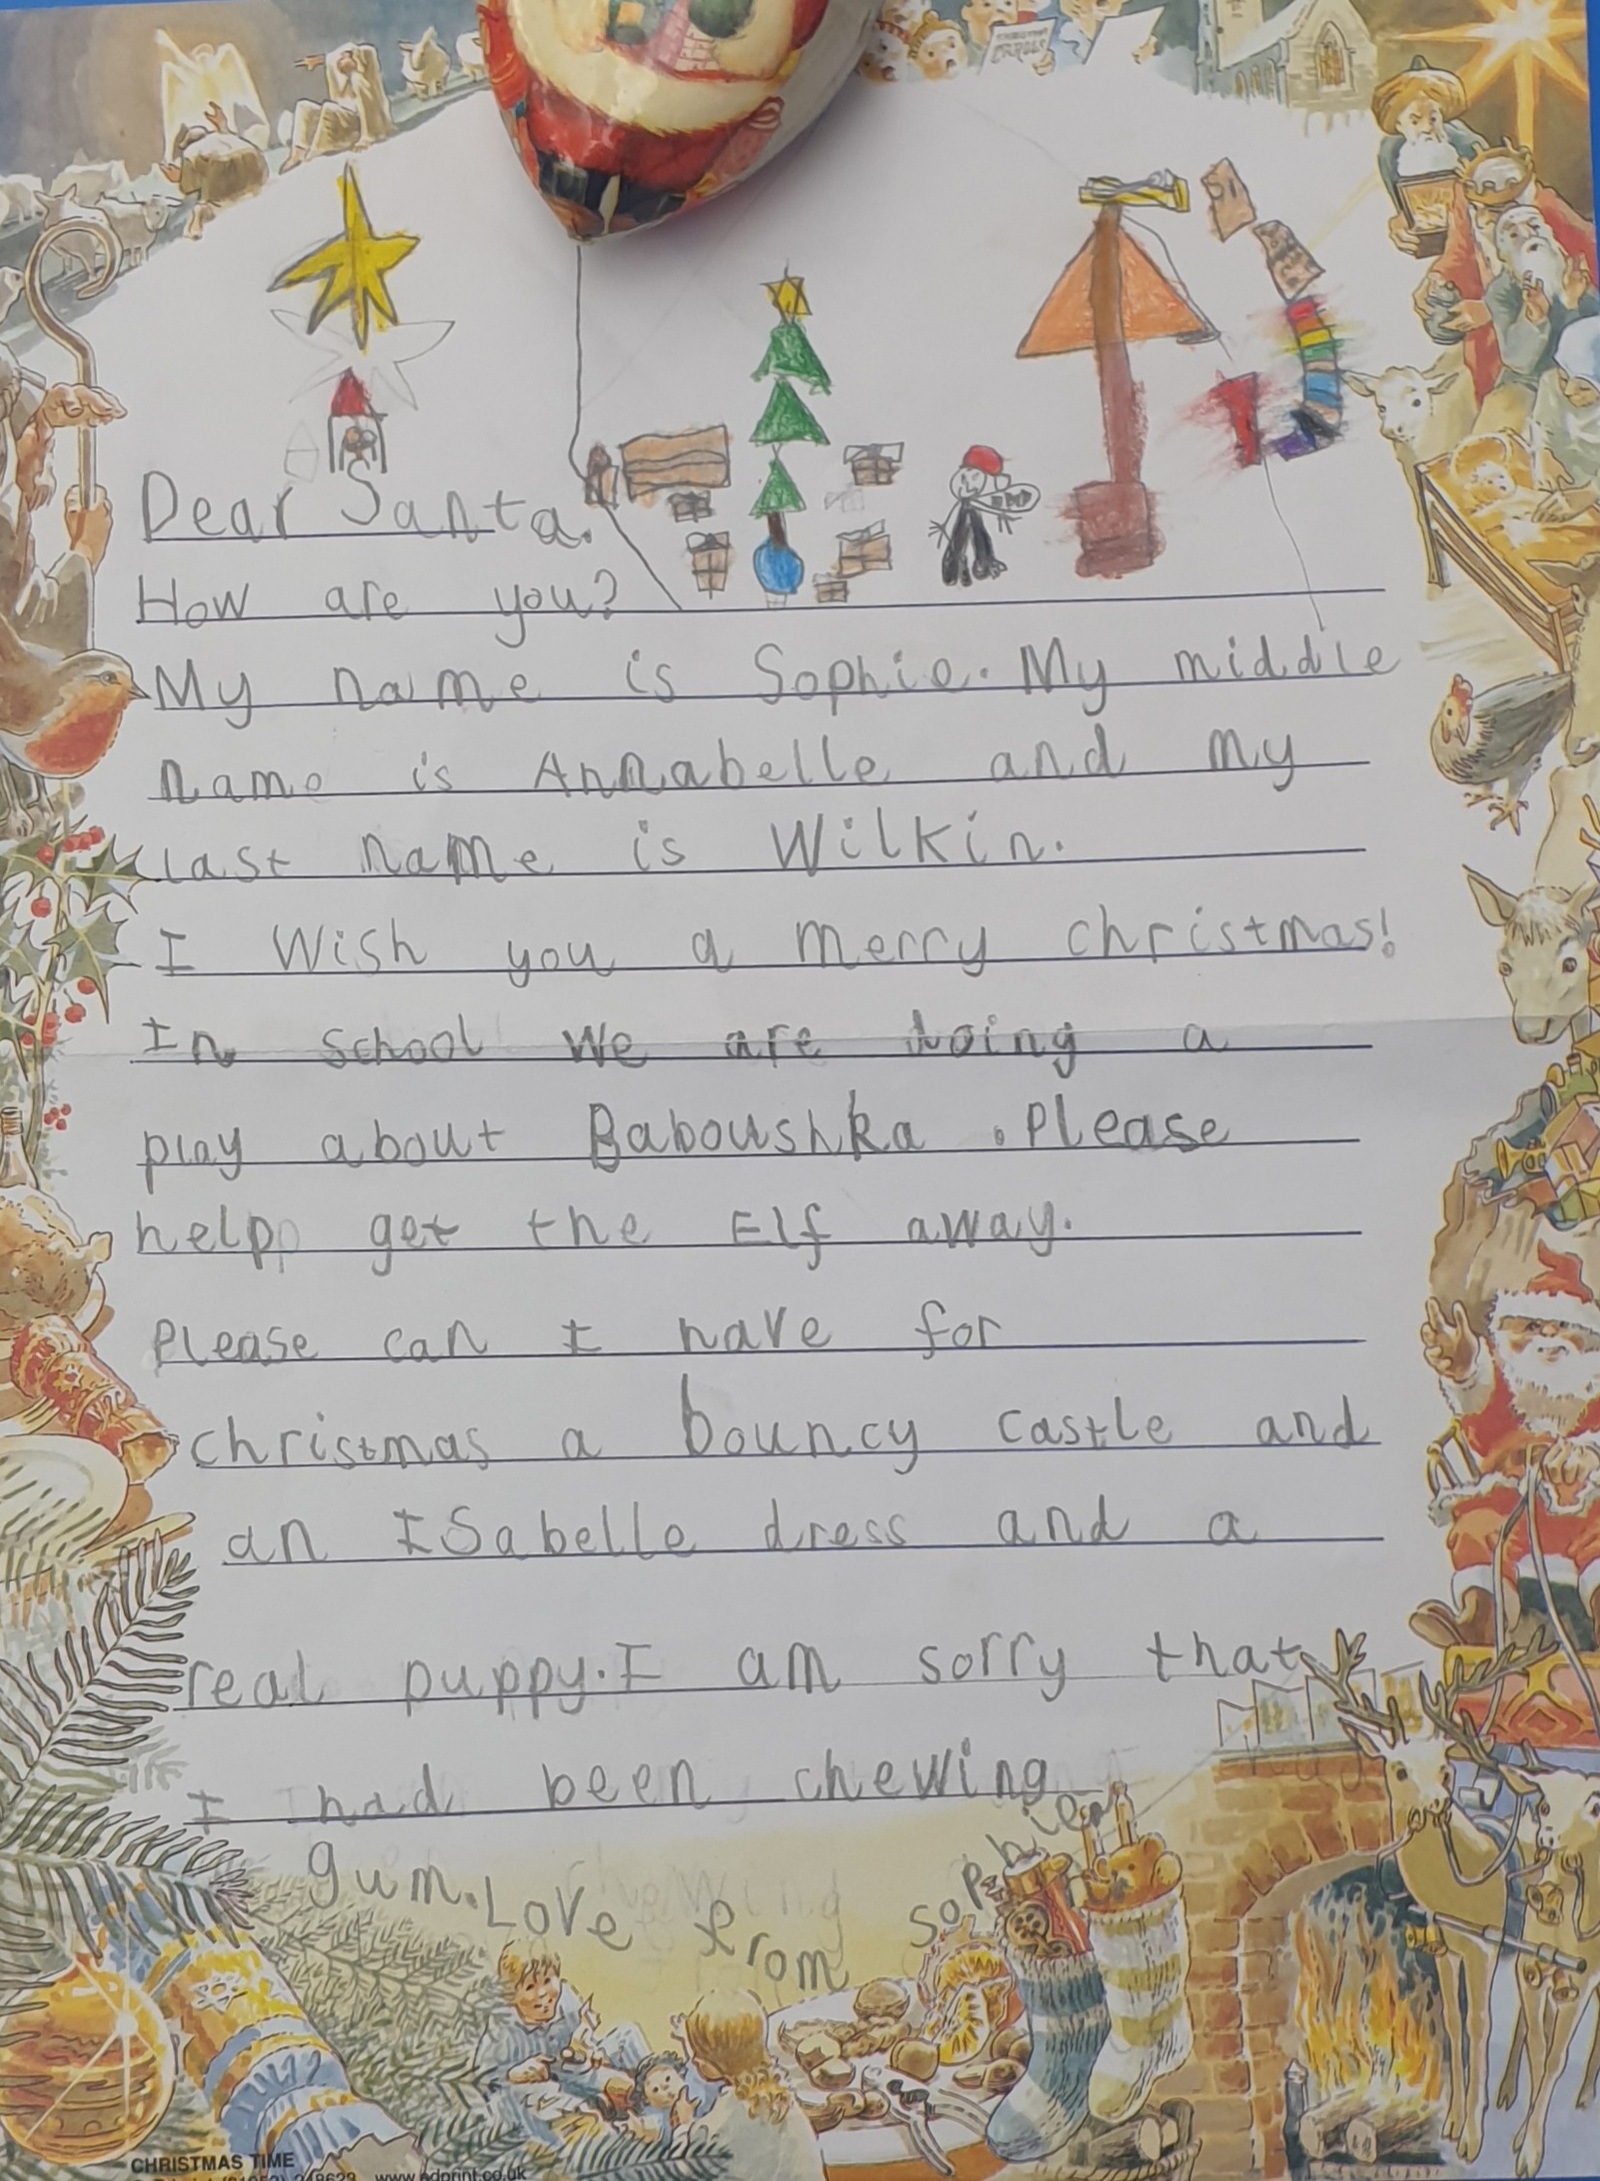 Dear Santa.
How are you?
My name is Sophie. My middle
name is Annabelle and my
last name is Wilkin.
I wish you a merry christmas!
In school we are doing a
play about Baboushka . Please
help get the Elf away.
Please can I have for
christmas a bouncy castle and
an ISabelle dress and a
real puppy. I am sorry that
I had been chewing
gum. Love from Sophie
CHRISTMAS TIME
www.edprint.co.uk